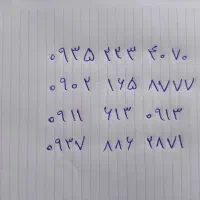 ۰۹۳۵ ۲۲۳ ۴۰۷۰
۰۹۰۲ ۱۶۵ ۸۷۷۷
۰۹۱۱ ۶۱۳ ۰۹۱۳
۰۹۳۷ ۸۸۶ ۲۸۷۱